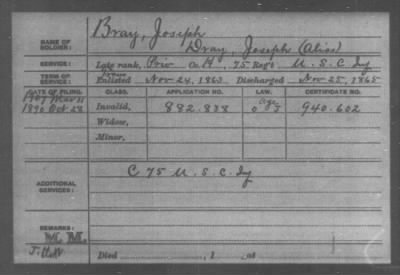 NAME OF SOLDIER: Bray, Joseph
Dray, Joseph (Alias)
SERVICE: Late rank, Priv Co. H, 75 Reg't U. S. C. Inf
TERM OF SERVICE: Enlisted Nov 24, 1863 Discharged Nov 25, 1865
DATE OF FILING. CLASS. APPLICATION NO. LAW. CERTIFICATE NO.
1907 Mar 11
1890 Oct 28 Invalid, 882.838 940.602
Widow,
Minor,
ADDITIONAL SERVICES: C 75 U. S. C. Inf
REMARKS:
M. M.
Died , 1 , at